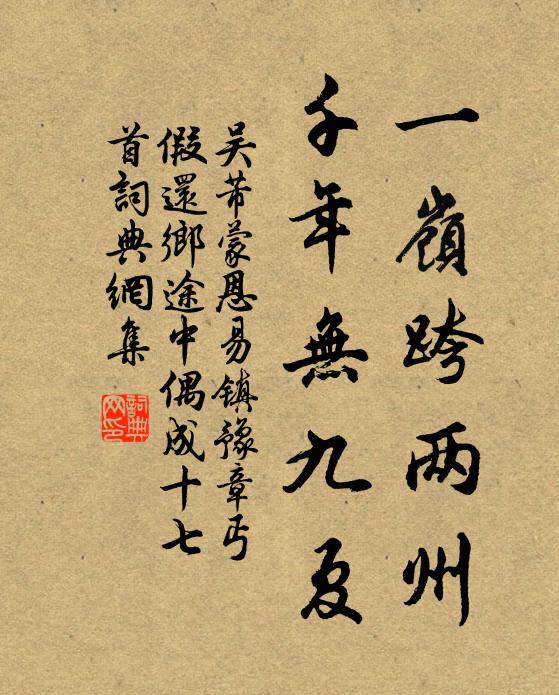 一嶺跨两州
千年無九夏
吴芾蒙恩易镇豫章丐
假還鄉途中偶成十七
首詞典網集
詞典
网印